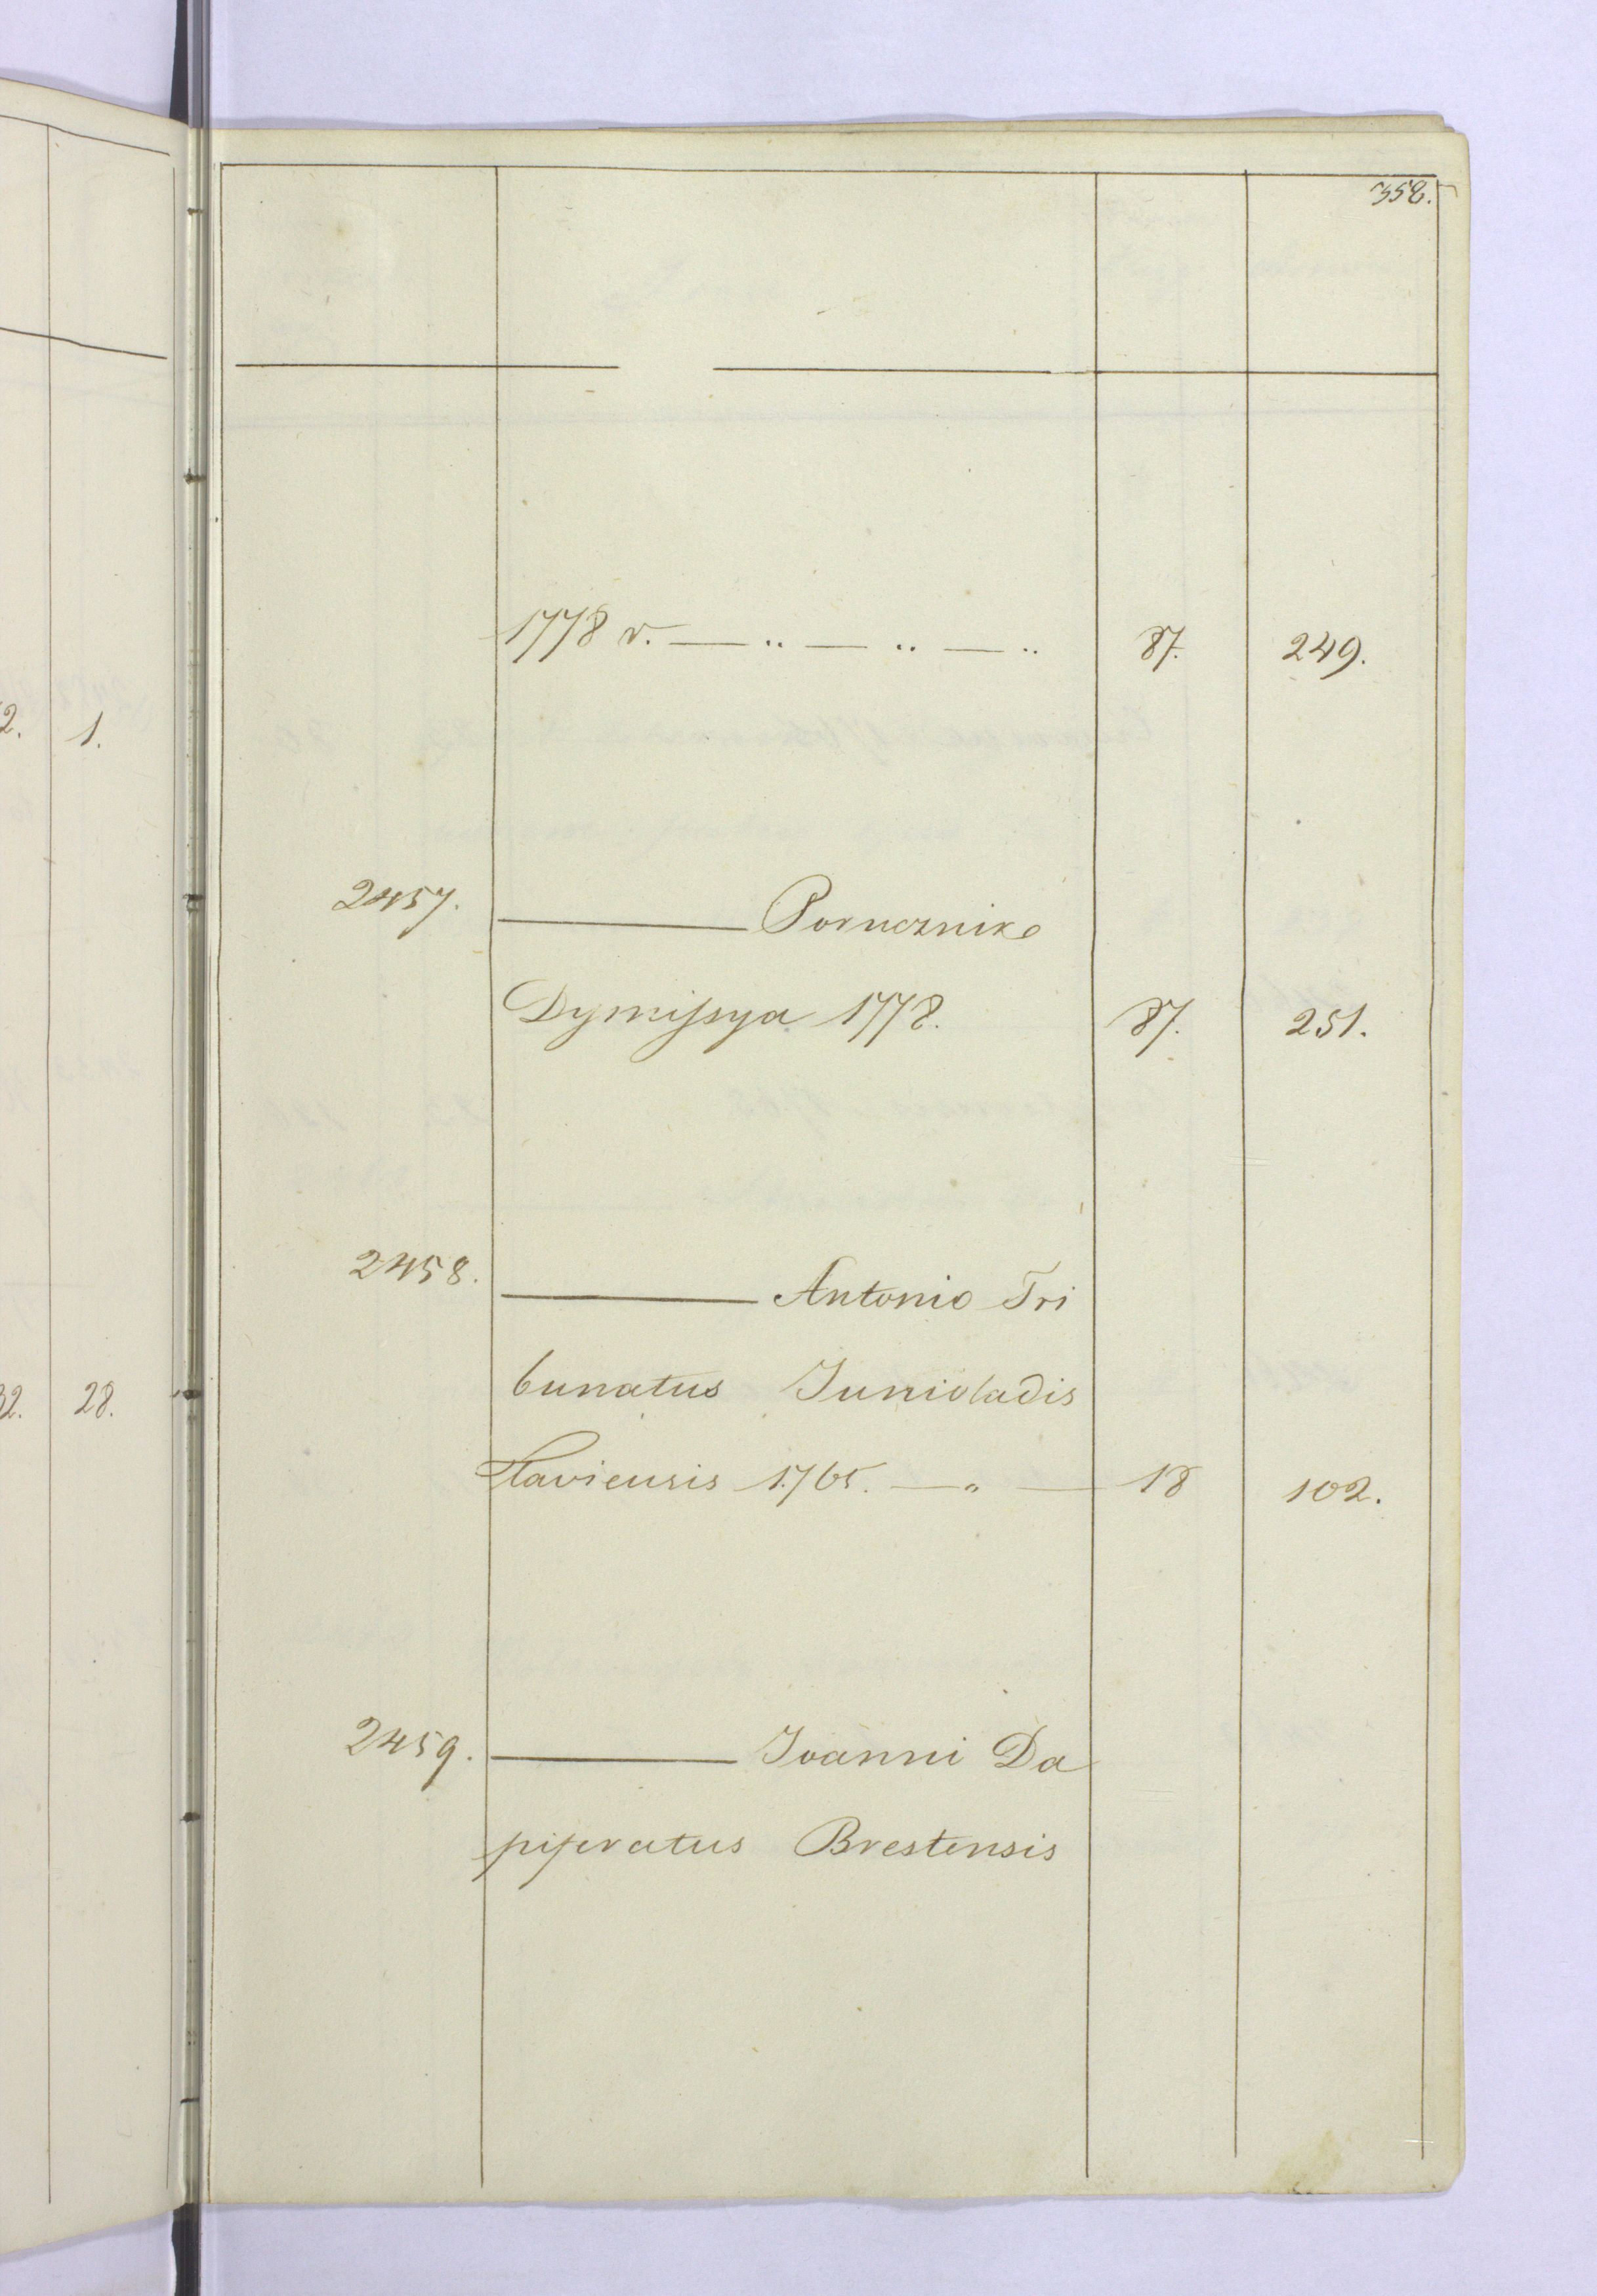 358.
1778 r. — „ — „ — „ 87. 249.
2457. ——— Porucznike
Dymissya 1778. 87. 251.
2458. ——— Antonio Tri
bunatus Junioladis
slaviensis 1765. — „ — 18 102.
2459. ——— Joanni Da
piferatus Brestensis
2. 1.
32. 28.